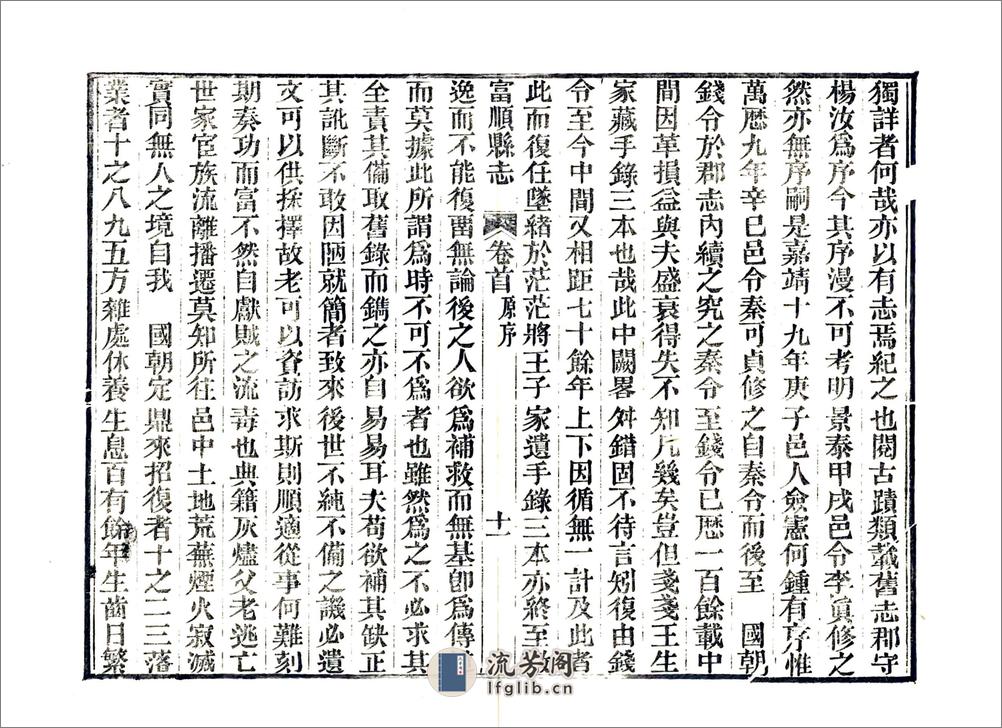 獨詳者何哉亦以有志焉紀之也閱古蹟類載舊志郡守
楊汝爲序今其序漫不可考明景泰甲戌邑令李眞修之
然亦無序嗣是嘉靖十九年庚子邑人僉憲何鍾有序惟
萬歷九年辛巳邑令秦可貞修之自秦令而後至　國朝
錢令於郡志内續之究之秦令至錢令已歷一百餘載中
間因革損益與夫盛衰得失不知凡幾矣豈但戔戔王生
家藏手錄三本也哉此中闕畧舛錯固不待言矧復由錢
令至今中間又相距七十餘年上下因循無一計及此者
此而復任墜緒於茫茫將王子家遺手錄三本亦終至
富順縣志　卷首　原序　十一
逸而不能復畱無論後之人欲爲補救而無基卽爲傳
而莫據此所謂爲時不可不爲者也雖然爲之不必求其
全責其備取舊錄而鐫之亦自易易耳夫苟欲補其缺正
其訛斷不敢因陋就簡者致來後世不純不備之譏必遺
文可以供採擇故老可以資訪求斯則順適從事何難刻
期奏功而富不然自獻賊之流毒也典籍灰燼父老逃亡
世家宦族流離播遷莫知所往邑中土地荒蕪煙火寂滅
實同無人之境自我　國朝定鼎來招復者十之二三落
業者十之八九五方雜處休養生息百有餘年生齒日繁
流芳阁
lfglib.cn